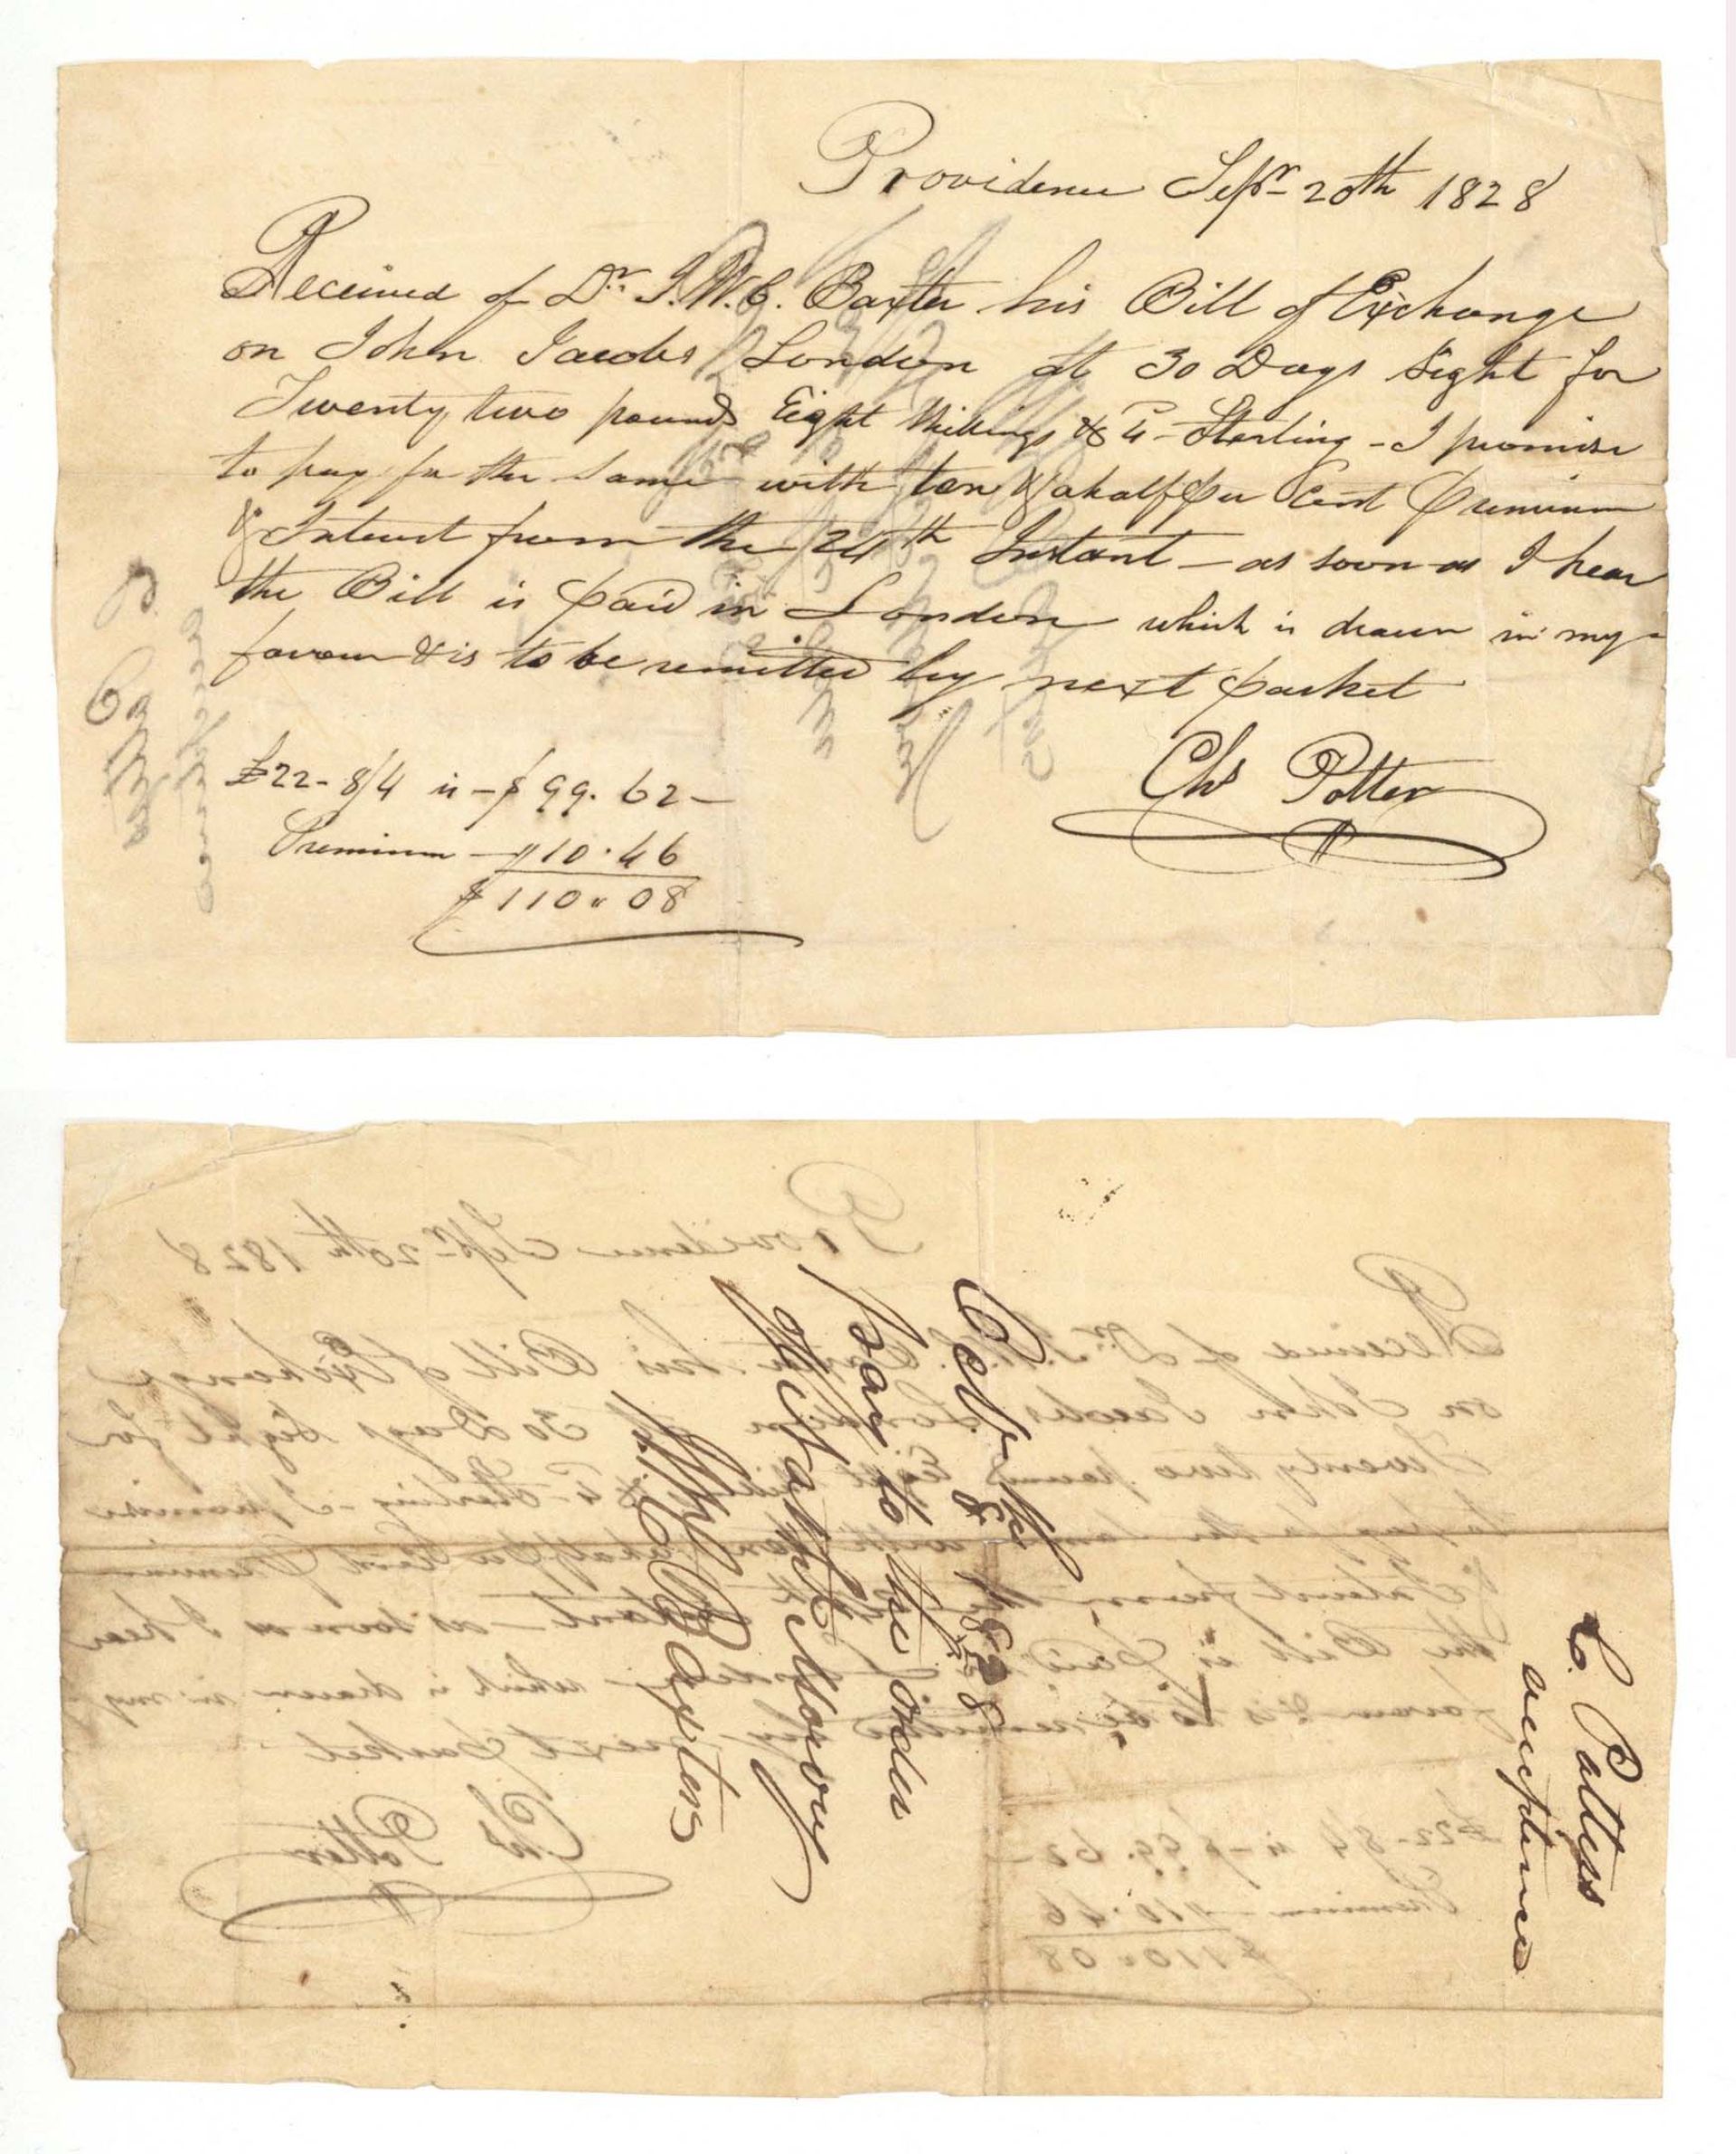 Providence Sepr 20th 1828
Received of Dr. J.W.C. Baxter his Bill of Exchange
on John Jacobs London at 30 Days Sight for
Twenty two pounds Eight Shillings & 4 Sterling - I promise
to pay for the same with ten & a half per Cent Premium
& Interest from the 24th Instant - as soon as I hear
the Bill is paid in London which is drawn in my
favour & is to be remitted by next packet
Chs Potter
£22-8/4 is - $99.62-
Premium - $10.46
$110.08
1828
pay to the order
W.C. Baxter
C. Potters
acceptance